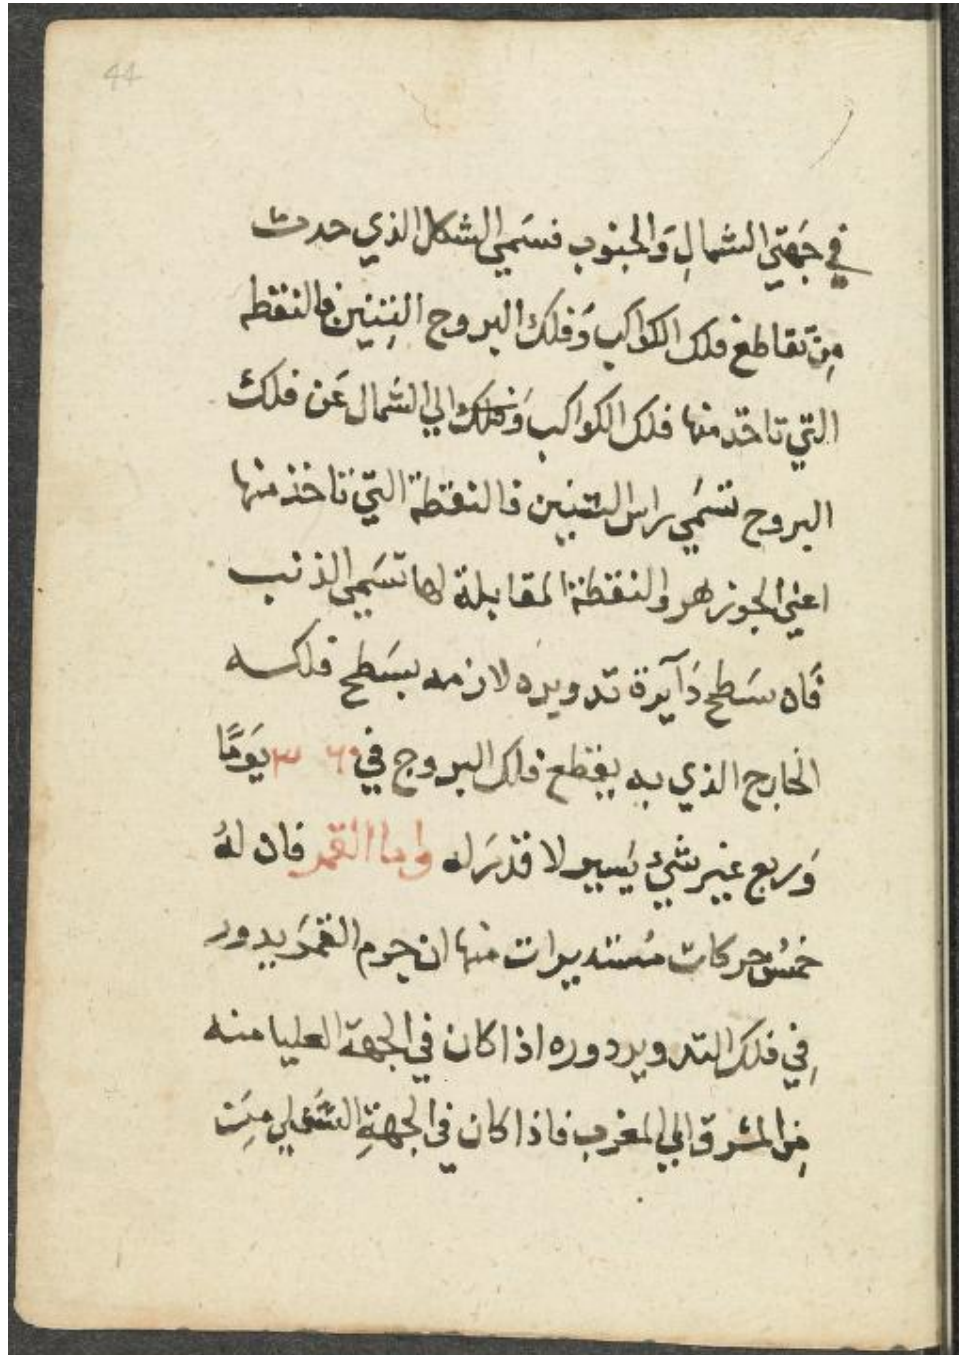 44
في جَهتي الشمالِ وَالجنوب فسَمي الشكل الذي حدث
مِن تقاطع فلك الكواكب وَفلك البروج التِنين فالنقطه
التي تاخد منها فلك الكواكب وَفلك الي الشمال عَن فلك
البروج تسَمي راس التنين فالنقطة التي تاخذ منها
اعني الجوزهر والنقطة المقابلة لها تسَمي الذنب
فَان سَطح دَآيرة تدويره لازمه بسَطح فلكه
الخارج الذي به يقطع فلك البروج في ٣٦٥ يَومًا
وَربع غير شيءٍ يَسير لا قدرَ له واما القمر فان لهُ
خمسُ حركات مُستديرات منها ان جرم القمرَ يدور
فِي فلك التدوير دوره اذا كان في الجهة العليا منه
مِن المشرق الي المغرب فاذا كان في الجهةِ السَفلي مِنَ